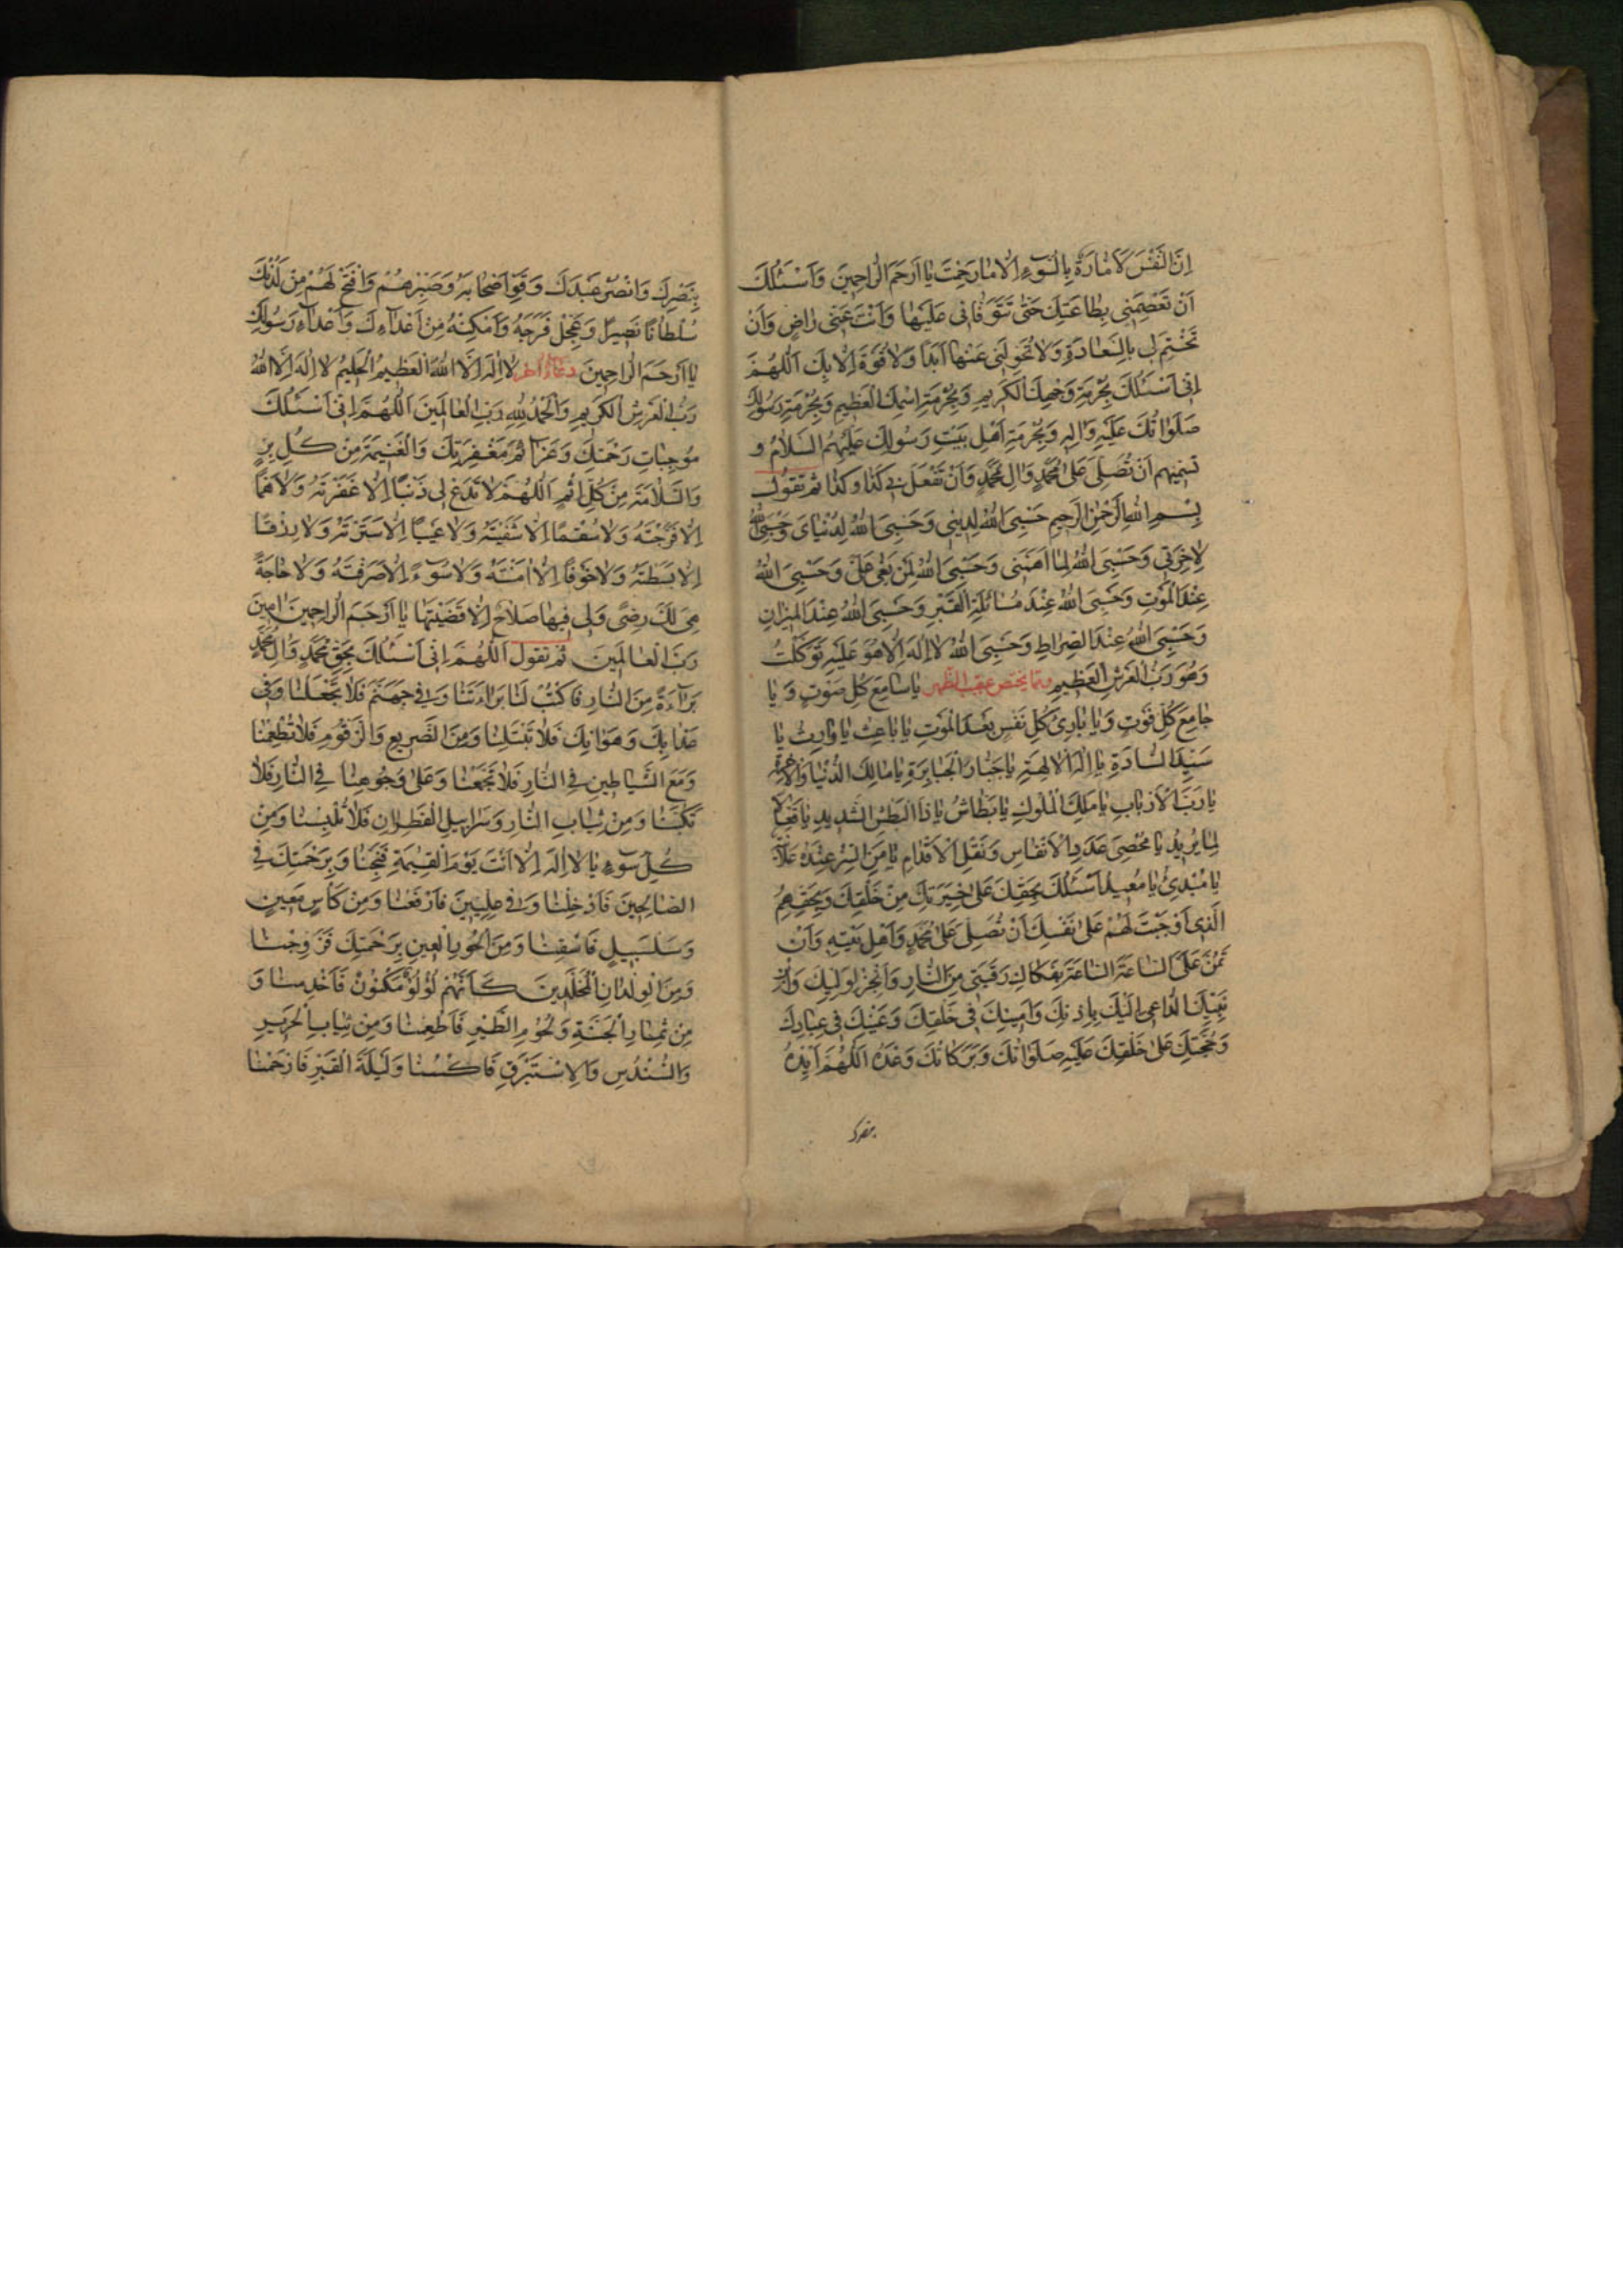 اِنَّ النَّفْسَ لَاَمّارَةٌ بِالسُّوٓءِ اِلّا ما رَحِمْتَ يا اَرْحَمَ الرّاحِمينَ وَاَسْئَلُكَ
اَنْ تَعْصِمَنى بِطاعَتِكَ حَتّى تَتَوَفّانى عَلَيْها وَاَنْتَ عَنّى راضٍ وَاَنْ
تَخْتِمَ لى بِالسَّعادَةِ وَلا تُحَوِّلَنى عَنْها اَبَدًا وَلا قُوَّةَ اِلّا بِكَ اَللّهُمَّ
اِنّى اَسْئَلُكَ بِحُرْمَةِ وَجْهِكَ الْكَريمِ وَبِحُرْمَةِ اسْمِكَ الْعَظيمِ وَبِحُرْمَةِ رَسُولِكَ
صَلَواتُكَ عَلَيْهِ وَالِهِ وَبِحُرْمَةِ اَهْلِ بَيْتِ رَسُولِكَ عَلَيْهِمُ السَّلامُ و
تسميهم اَنْ تُصَلِّىَ عَلى مُحَمَّدٍ وَالِ مُحَمَّدٍ وَاَنْ تَفْعَلَ بى كَذا وَكَذا ثم تقول
بِسْمِ اللهِ الرَّحْمنِ الرَّحيمِ حَسْبِىَ اللهُ لِدينى وَحَسْبِىَ اللهُ لِدُنْياىَ وَحَسْبِىَ اللهُ
لِاخِرَتى وَحَسْبِىَ اللهُ لِما اَهَمَّنى وَحَسْبِىَ اللهُ لِمَنْ بَغى عَلَىَّ وَحَسْبِىَ اللهُ
عِنْدَ الْمَوْتِ وَحَسْبِىَ اللهُ عِنْدَ مُسائَلَةِ الْقَبْرِ وَحَسْبِىَ اللهُ عِنْدَ الْميزانِ
وَحَسْبِىَ اللهُ عِنْدَ الصِّراطِ وَحَسْبِىَ اللهُ لا اِلهَ اِلّا هُوَ عَلَيْهِ تَوَكَّلْتُ
وَهُوَ رَبُّ الْعَرْشِ الْعَظيمِ ومما يختص عقيب الظهر يا سامِعَ كُلِّ صَوْتٍ وَيا
جامِعَ كُلِّ فَوْتٍ وَيا بارِئَ كُلِّ نَفْسٍ بَعْدَ الْمَوْتِ يا باعِثُ يا وارِثُ يا
سَيِّدَ السّادَةِ يا اِلهَ الْالِهَةِ يا جَبّارَ الْجَبابِرَةِ يا مالِكَ الدُّنْيا وَالْاخِرَةِ
يا رَبَّ الْاَرْبابِ يا مَلِكَ الْمُلُوكِ يا بَطّاشُ يا ذَا الْبَطْشِ الشَّديدِ يا فَعّالًا
لِما يُريدُ يا مُحْصِىَ عَدَدِ الْاَنْفاسِ وَنَقْلِ الْاَقْدامِ يا مَنِ السِّرُّ عِنْدَهُ عَلانِيَةٌ
يا مُبْدِئُ يا مُعيدُ اَسْئَلُكَ بِحَقِّكَ عَلى خِيَرَتِكَ مِنْ خَلْقِكَ وَبِحَقِّهِمُ
الَّذى اَوْجَبْتَ لَهُمْ عَلى نَفْسِكَ اَنْ تُصَلِّىَ عَلى مُحَمَّدٍ وَاَهْلِ بَيْتِهِ وَاَنْ
تَمُنَّ عَلَىَّ السّاعَةَ السّاعَةَ بِفَكاكِ رَقَبَتى مِنَ النّارِ وَاَنْجِزْ لِوَلِيِّكَ وَابْنِ
نَبِيِّكَ الدّاعى اِلَيْكَ بِاِذْنِكَ وَاَمينِكَ فى خَلْقِكَ وَعَيْنِكَ فى عِبادِكَ
وَحُجَّتِكَ عَلى خَلْقِكَ عَلَيْهِ صَلَواتُكَ وَبَرَكاتُكَ وَعْدَهُ اَللّهُمَّ اَيِّدْهُ
بنصرك
بِنَصْرِكَ وَانْصُرْ عَبْدَكَ وَقَوِّ اَصْحابَهُ وَصَبِّرْهُمْ وَافْتَحْ لَهُمْ مِنْ لَدُنْكَ
سُلْطانًا نَصيرًا وَعَجِّلْ فَرَجَهُ وَاَمْكِنْهُ مِنْ اَعْدآءِكَ وَاَعْدآءِ رَسُولِكَ
يا اَرْحَمَ الرّاحِمينَ دعاء اخر لا اِلهَ اِلَّا اللهُ الْعَظيمُ الْحَليمُ لا اِلهَ اِلَّا اللهُ
رَبُّ الْعَرْشِ الْكَريمِ وَالْحَمْدُ لِلّهِ رَبِّ الْعالَمينَ اَللّهُمَّ اِنّى اَسْئَلُكَ
مُوجِباتِ رَحْمَتِكَ وَعَزآئِمَ مَغْفِرَتِكَ وَالْغَنيمَةَ مِنْ كُلِّ بِرٍّ
وَالسَّلامَةَ مِنْ كُلِّ اِثْمٍ اَللّهُمَّ لا تَدَعْ لى ذَنْبًا اِلّا غَفَرْتَهُ وَلا هَمًّا
اِلّا فَرَّجْتَهُ وَلا سُقْمًا اِلّا شَفَيْتَهُ وَلا عَيْبًا اِلّا سَتَرْتَهُ وَلا رِزْقًا
اِلّا بَسَطْتَهُ وَلا خَوْفًا اِلّا امَنْتَهُ وَلا سُوٓءً اِلّا صَرَفْتَهُ وَلا حاجَةً
هِىَ لَكَ رِضًى وَلى فيها صَلاحٌ اِلّا قَضَيْتَها يا اَرْحَمَ الرّاحِمينَ امينَ
رَبَّ الْعالَمينَ ثم تقول اَللّهُمَّ اِنّى اَسْئَلُكَ بِحَقِّ مُحَمَّدٍ وَالِ مُحَمَّدٍ
بَرآءَةً مِنَ النّارِ فَاكْتُبْ لَنا بَراءَتَنا وَفى جَهَنَّمَ فَلا تَجْعَلْنا وَفى
عَذابِكَ وَهَوانِكَ فَلا تَبْتَلِنا وَمِنَ الضَّريعِ وَالزَّقُّومِ فَلا تُطْعِمْنا
وَمَعَ الشَّياطينِ فِى النّارِ فَلا تَجْمَعْنا وَعَلى وُجُوهِنا فِى النّارِ فَلا
تَكْبُبْنا وَمِنْ ثِيابِ النّارِ وَسَرابيلِ الْقَطِرانِ فَلا تُلْبِسْنا وَمِنْ
كُلِّ سُوٓءٍ يا لا اِلهَ اِلّا اَنْتَ يَوْمَ الْقِيمَةِ فَنَجِّنا وَبِرَحْمَتِكَ فِى
الصّالِحينَ فَاَدْخِلْنا وَفى عِلِّيّينَ فَارْفَعْنا وَمِنْ كَاْسٍ مَعينٍ
وَسَلْسَبيلٍ فَاسْقِنا وَمِنَ الْحُورِ الْعينِ بِرَحْمَتِكَ فَزَوِّجْنا
وَمِنَ الْوِلْدانِ الْمُخَلَّدينَ كَاَنَّهُمْ لُؤْلُؤٌ مَكْنُونٌ فَاَخْدِمْنا وَ
مِنْ ثِمارِ الْجَنَّةِ وَلُحُومِ الطَّيْرِ فَاَطْعِمْنا وَمِنْ ثِيابِ الْحَريرِ
وَالسُّنْدُسِ وَالْاِسْتَبْرَقِ فَاكْسُنا وَلَيْلَةَ الْقَدْرِ فَارْحَمْنا